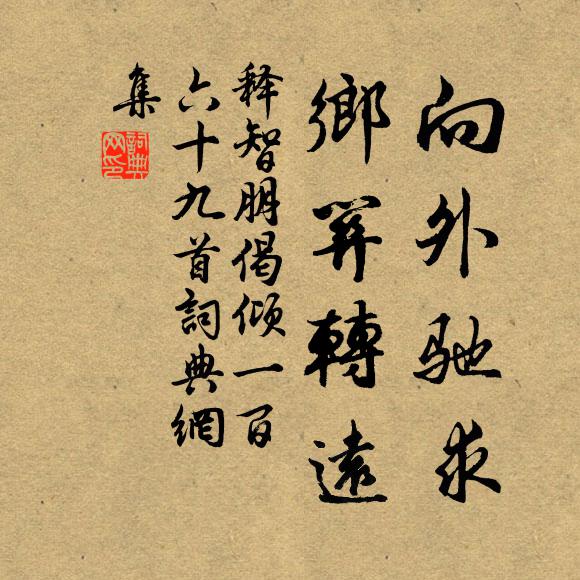 向外驰求
鄉関轉遠
释智朋偈倾一百
六十九首詞典網
集
詞典
网印